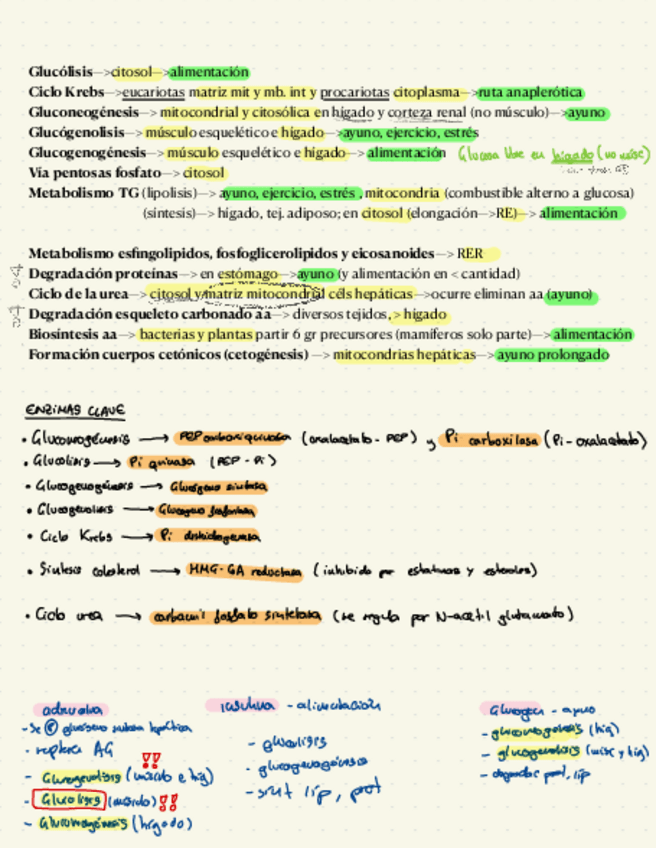 Glucólisis—>citosol—>alimentación
Ciclo Krebs—>eucariotas matriz mit y mb. int y procariotas citoplasma—>ruta anaplerótica
Gluconeogénesis—> mitocondrial y citosólica en hígado y corteza renal (no músculo)—>ayuno
Glucógenolisis—> músculo esquelético e hígado—>ayuno, ejercicio, estrés
Glucogenogénesis—> músculo esquelético e hígado—> alimentación Glucosa libre en hígado (no músc)
Vía pentosas fosfato—> citosol
Metabolismo TG (lipolisis)—> ayuno, ejercicio, estrés , mitocondria (combustible alterno a glucosa)
(síntesis)—> hígado, tej. adiposo; en citosol (elongación—>RE)—> alimentación
Metabolismo esfingolipidos, fosfoglicerolipidos y eicosanoides—> RER
Degradación proteínas—> en estómago—>ayuno (y alimentación en < cantidad)
Ciclo de la urea—> citosol y matriz mitocondrial céls hepáticas—>ocurre eliminan aa (ayuno)
Degradación esqueleto carbonado aa—> diversos tejidos, > hígado
Biosíntesis aa—> bacterias y plantas partir 6 gr precursores (mamíferos solo parte)—> alimentación
Formación cuerpos cetónicos (cetogénesis) —> mitocondrias hepáticas—> ayuno prolongado
ENZIMAS CLAVE
• Gluconeogénesis → PEP carboxiquinasa (oxalacetato - PEP) y Pi carboxilasa (Pi - oxalacetato)
• Glucólisis → Pi quinasa (PEP - Pi)
• Glucogenogénesis → Glucógeno sintasa
• Glucogenolisis → Glucógeno fosforilasa
• Ciclo Krebs → Pi deshidrogenasa
• Síntesis colesterol → HMG-CoA reductasa (inhibido por estatinas y esteroles)
• Ciclo urea → carbamil fosfato sintetasa (se regula por N-acetil glutamato)
adrenalina
- Se glucógeno sintasa hepática
- AG
- Glucogenolisis (músculo e híg) !!
- Glucolisis (músculo) !!
- Gluconeogénesis (hígado)
insulina - alimentación
- glucólisis
- glucogenogénesis
- sínt líp, prot
Glucagón - ayuno
- gluconeogénesis (híg)
- glucogenolisis (músc y híg)
- degradac prot, líp